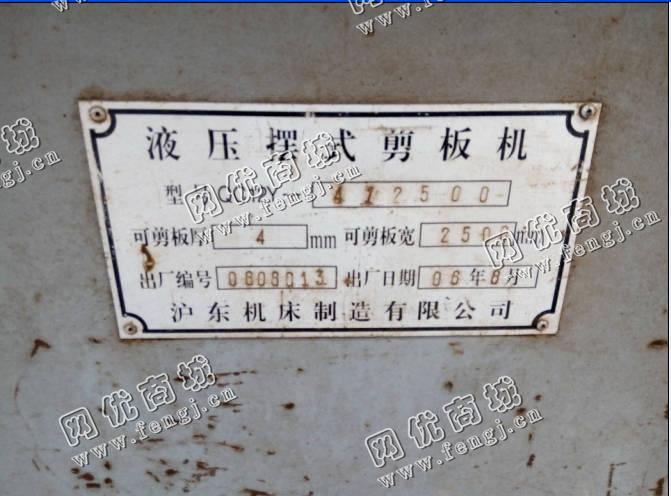 网优商城
www.fengj.cn
商城
ngj.cn
液压摆式剪板机
型号 QC12Y— 4X2500
可剪板厚 4 mm 可剪板宽 250 mm
出厂编号 0608013 出厂日期 06年8月
沪东机床制造有限公司
网优商城
www.fengj.cn
网优商城
www.fengj.cn
网优商城
www.fengj.cn